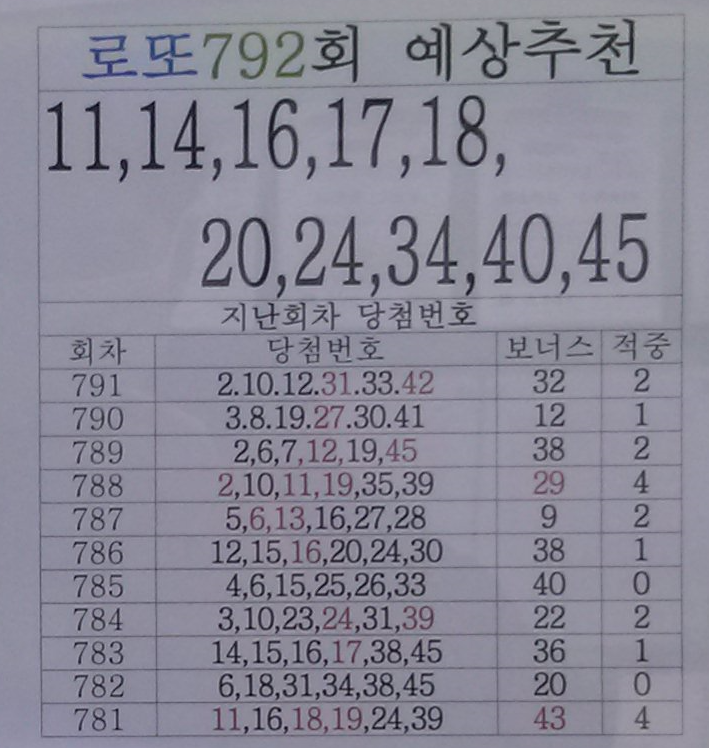 로또792회 예상추천
11,14,16,17,18,
20,24,34,40,45
지난회차 당첨번호
회차 당첨번호 보너스 적중
791 2.10.12.31.33.42 32 2
790 3.8.19.27.30.41 12 1
789 2,6,7,12,19,45 38 2
788 2,10,11,19,35,39 29 4
787 5,6,13,16,27,28 9 2
786 12,15,16,20,24,30 38 1
785 4,6,15,25,26,33 40 0
784 3,10,23,24,31,39 22 2
783 14,15,16,17,38,45 36 1
782 6,18,31,34,38,45 20 0
781 11,16,18,19,24,39 43 4